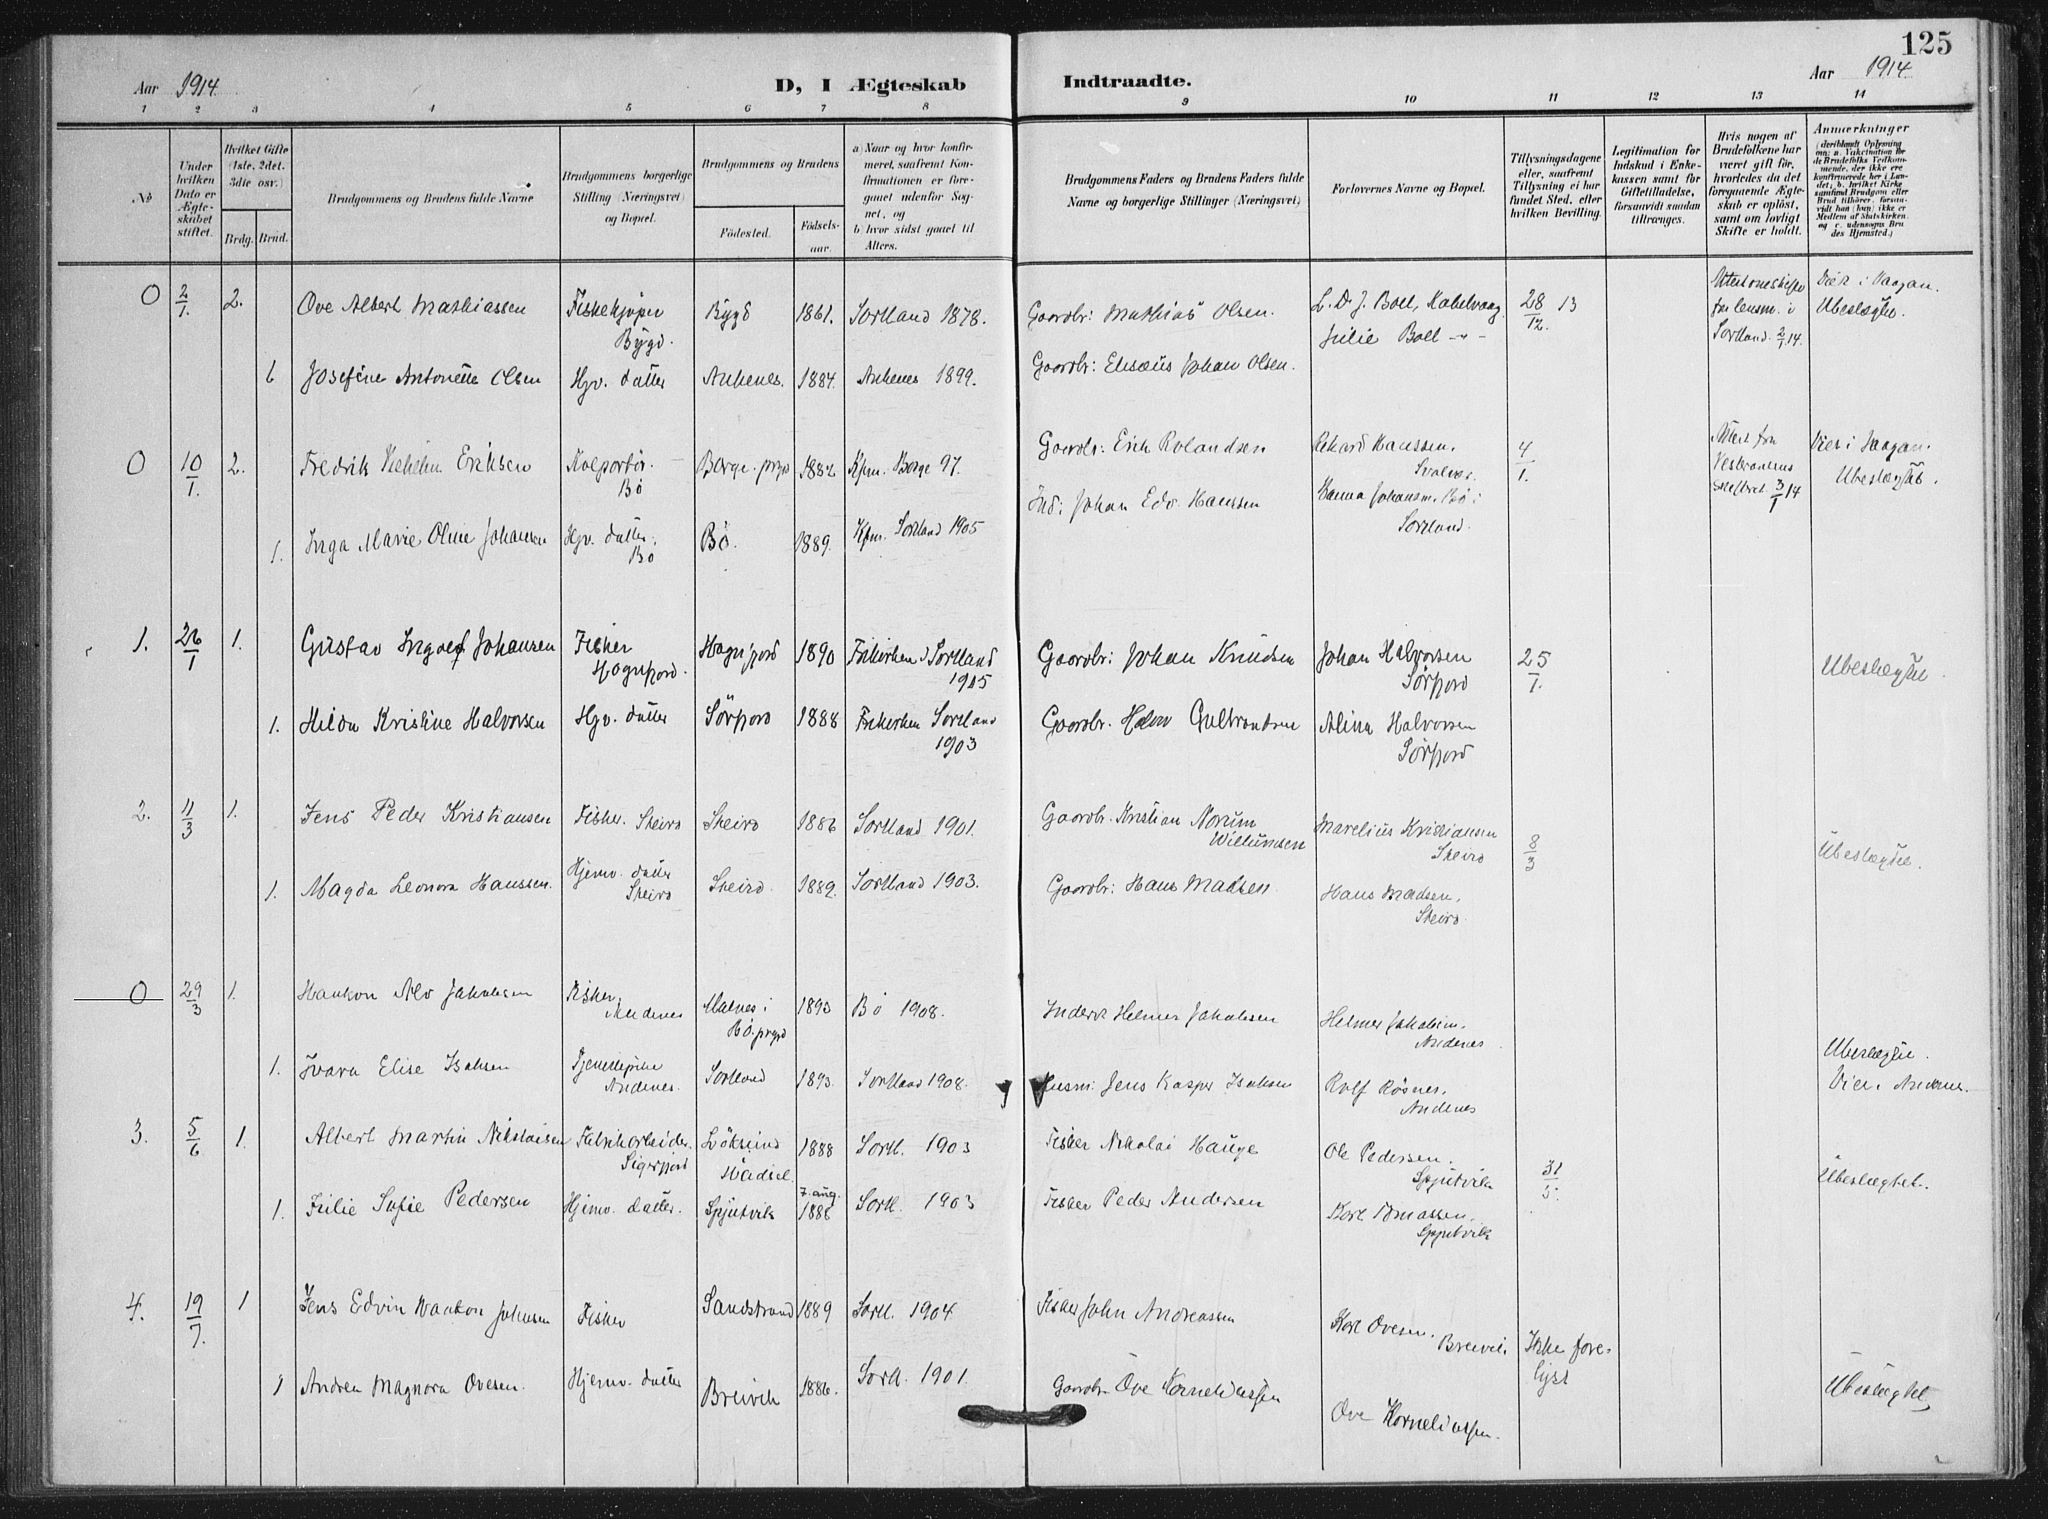 125
Aar 1914.
D, I Ægteskab Indtraadte.
Aar 1914.
1 2 3 4 5 6 7 8 9 10 11 12 13 14
No
Under hvilken Dato er Ægteskabet stiftet.
Hvilket Gifte (1ste, 2det, 3die osv.)
Brdg. Brud.
Brudgommens og Brudens fulde Navne
Brudgommens borgerlige Stilling (Næringsvei) og Bopæl.
Brudgommens og Brudens
Fødested. Fødselsaar.
a) Naar og hvor konfirmeret, saafremt Konfirmationen er foregaaet udenfor Sognet, og
b) hvor sidst gaaet til Alters.
Brudgommens Faders og Brudens Faders fulde Navne og borgerlige Stillinger (Næringsvei).
Forlovernes Navne og Bopæl.
Tillysningsdagene eller, saafremt Tillysning ei har fundet Sted, efter hvilken Bevilling.
Legitimation for Indskud i Enkekassen samt for Giftetilladelse, forsaavidt saadan tiltrænges.
Hvis nogen af Brudefolkene har været gift før, hvorledes da det foregaaende Ægteskab er opløst, samt om lovligt Skifte er holdt.
Anmærkninger
0 2/1. 2. Ove Albert Mathiassen Fiskekjøper Bygd. Bygd 1861. Sortland 1878. Gaardbr: Mathias Olsen. L. D. J. Boll, Kabelvaag 28/12. 13 Sortland 2/1 14. Viet i Vaagan. Ubeslægtet.
Julie Boll -"-
6 Josefine Antonette Olsen Hjv. datter Ankenes. 1884. Ankenes 1899. Gaardbr: Elisæus Johan Olsen.
0 10/1. 2. Fredrik Vilhelm Eriksen Kolportør. Bø Borge prgd Kfm. Borge 97. Gaardbr: Erik Rolandsen Rikard Hanssen, Svolvær. 4/1. Attest fra 3/1 14 Viet i Vaagan. Ubeslægtet.
1. Inga Marie Oline Johansen Hjv. datter. Bø Bø. 1889. Kfm. Sortland 1905 Ind: Johan Edv. Hanssen Hanna Johansen. Bø i Sortland.
1. 26/1 1. Gustav Ingolf Johansen Fisker Hognfjord. Hognfjord 1890 Frikirken i Sortland 1905 Gaardbr: Johan Knudsen Johan Halvorsen Sørfjord 25/1. Ubeslægtet.
1. Hilda Kristine Halvorsen Hjv. datter Sørfjord 1888 Frikirken Sortland 1903 Gaardbr. Halvor Gulbrandsen Alina Halvorsen Sørfjord
2. 11/3 1. Jens Peder Kristiansen Fisker. Skeiro Skeiro 1886 Sortland 1901. Gaardbr. Kristian Norum Willumsen Marelius Kristiansen Skeiro 8/3 Ubeslægtet.
1. Magda Leonora Hanssen. Hjemv. datter Skeiro Skeiro. 1889. Sortland 1903. Gaardbr: Hans Madsen. Hans Madsen, Skeiro.
0 29/3 1. Haakon Alv Jakobsen Fisker, Andenes Malnes i Bø prgd 1893 Bø 1908. Inderst Helmer Jakobsen Helmer Jakobsen. Andenes
1. Svara Elise Isaksen Tjenestepike Andenes. Sortland 1893. Sortland 1908. Husm: Jens Kasper Isaksen Rolf Røsnes, Andenes Ubeslægtet. Viet i Andenes.
3. 5/6 1. Albert Martin Nikolaisen Fabrikarbeider. Sigerfjord Hadsel 1888 Sortl. 1903 Fisker Nikolai Hauge Ole Pedersen. Spjutvik 31/5. Ubeslægtet.
1. Julie Sofie Pedersen Hjemv. datter. Spjutvik 7. aug. 1888 Sortl. 1903 Fisker Peder Andersen Karl Tomassen. Spjutvik
4. 19/7. 1 Jens Edvin Haakon Johnsen Fisker Sandstrand 1889 Sortl. 1904 Fisker John Andreassen Karl Ovesen. Breivik Ikke forelyst Ubeslægtet.
1 Andrea Magnora Ovesen. Hjemv. datter Breivik 1886. Sortl. 1901. Gaardbr. Ove Korneliussen Ove Korneliussen.